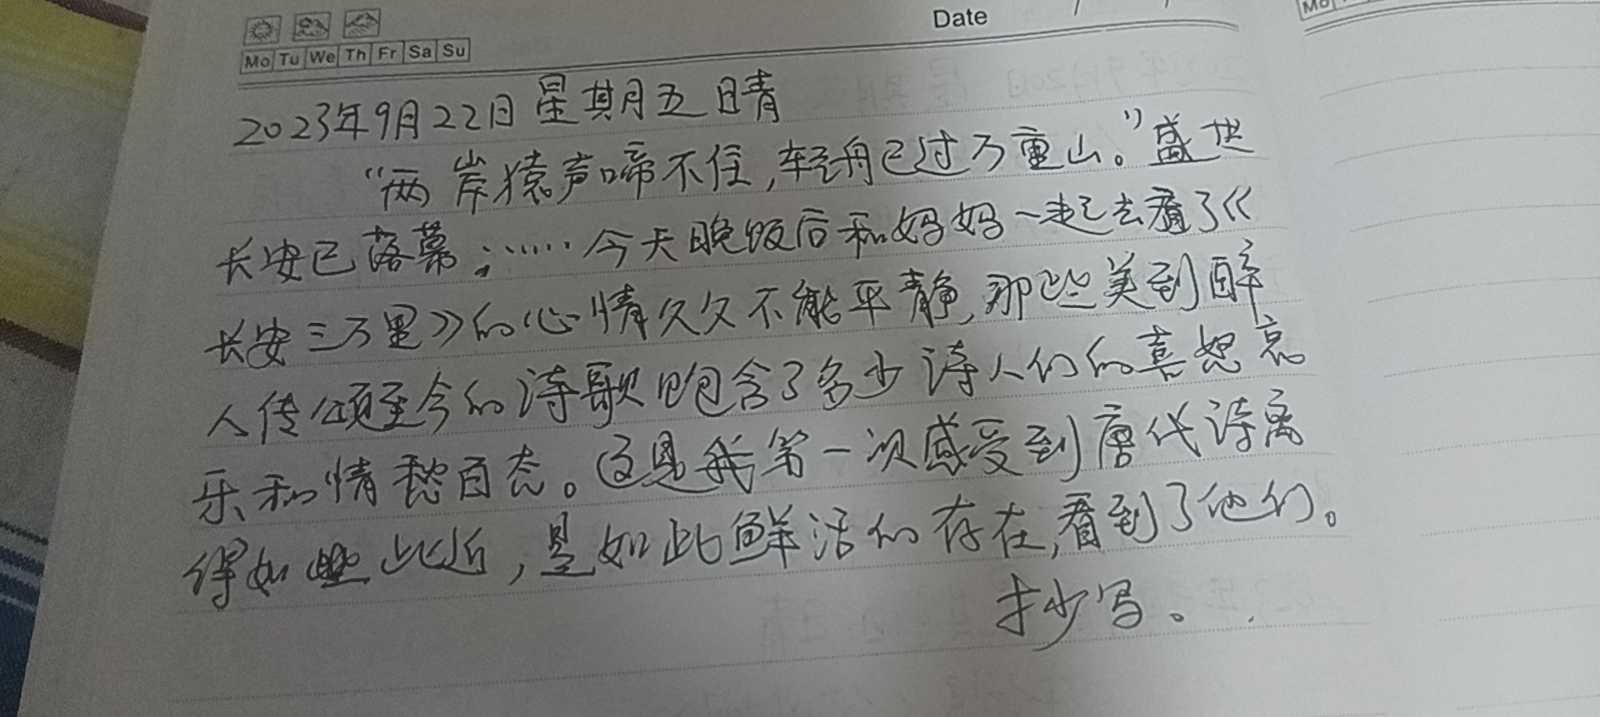 Date
Mo Tu We Th Fr Sa Su
2023年9月22日 星期五 晴
“两岸猿声啼不住,轻舟已过万重山。”盛世
长安已落幕;……今天晚饭后和妈妈一起去看了《
长安三万里》的心情久久不能平静,那些美到醉
人传颂至今的诗歌饱含了多少诗人们的喜怒哀
乐和情愁百态。这是我第一次感受到唐代诗离
得如此近,是如此鲜活的存在,看到了他们。
抄写。
Mo